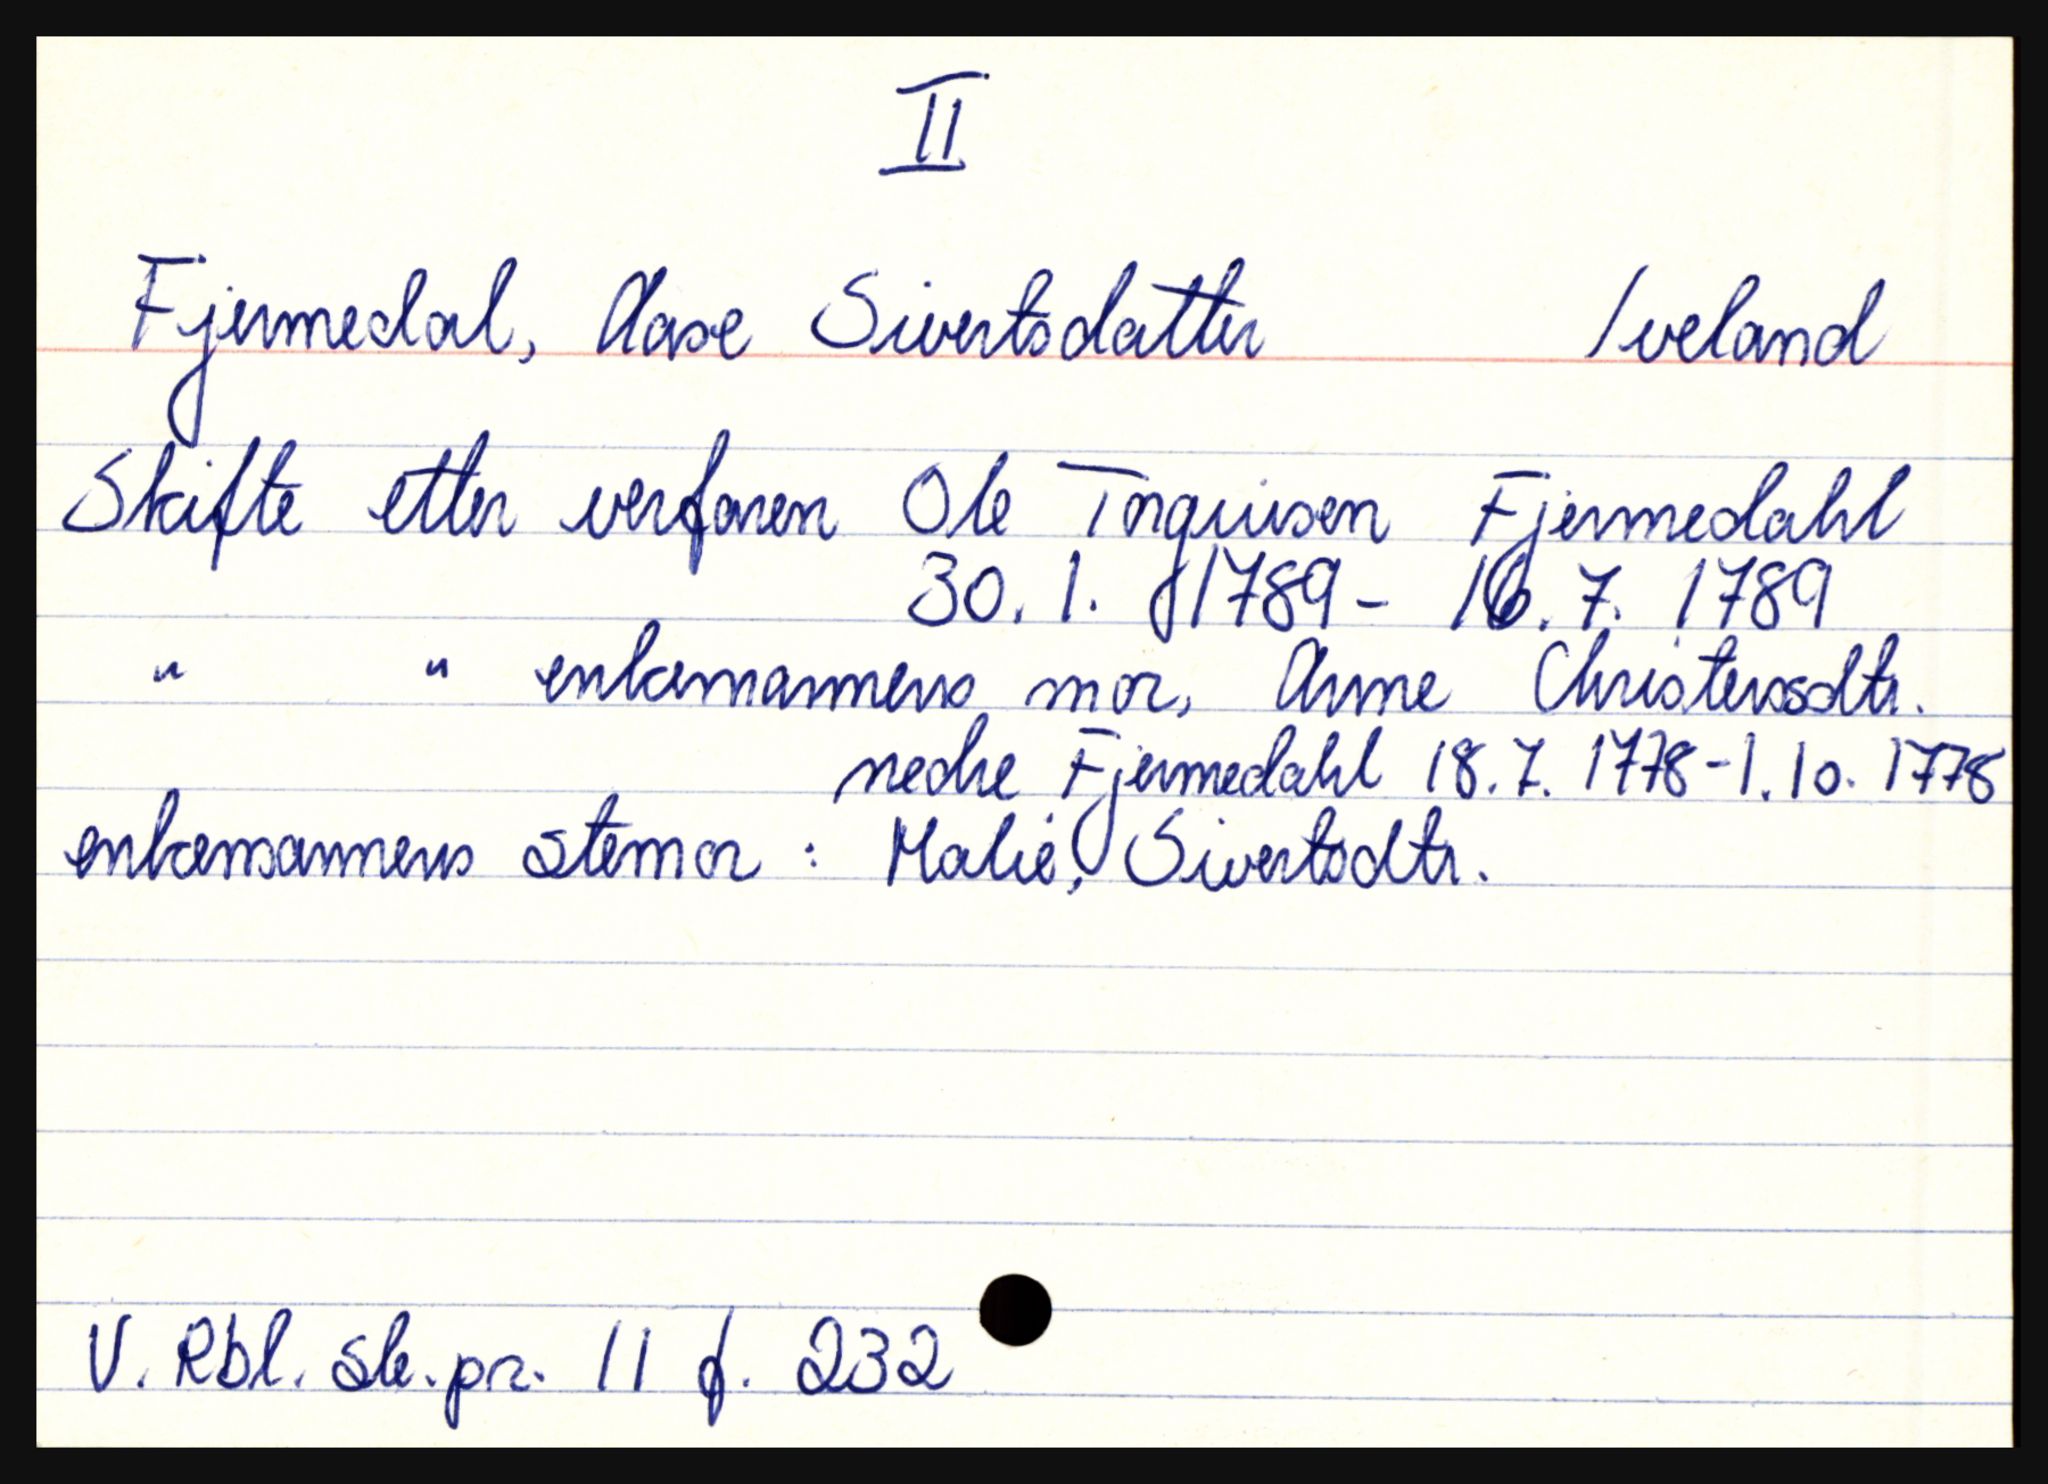 II
Fjermedal, Aase Sivertsdatter Iveland
Skifte etter verfaren Ole Torquisen Fjermedahl
30. 1. 1789 - 16. 7. 1789
" " enkemannens mor, Anne Christenssdtr.
nedre Fjermedahl 18. 7. 1778 - 1. 10. 1778
enkemannens stemor : Malié, Sivertsdtr.
V. Rbl. sk. pr. 11 f. 232